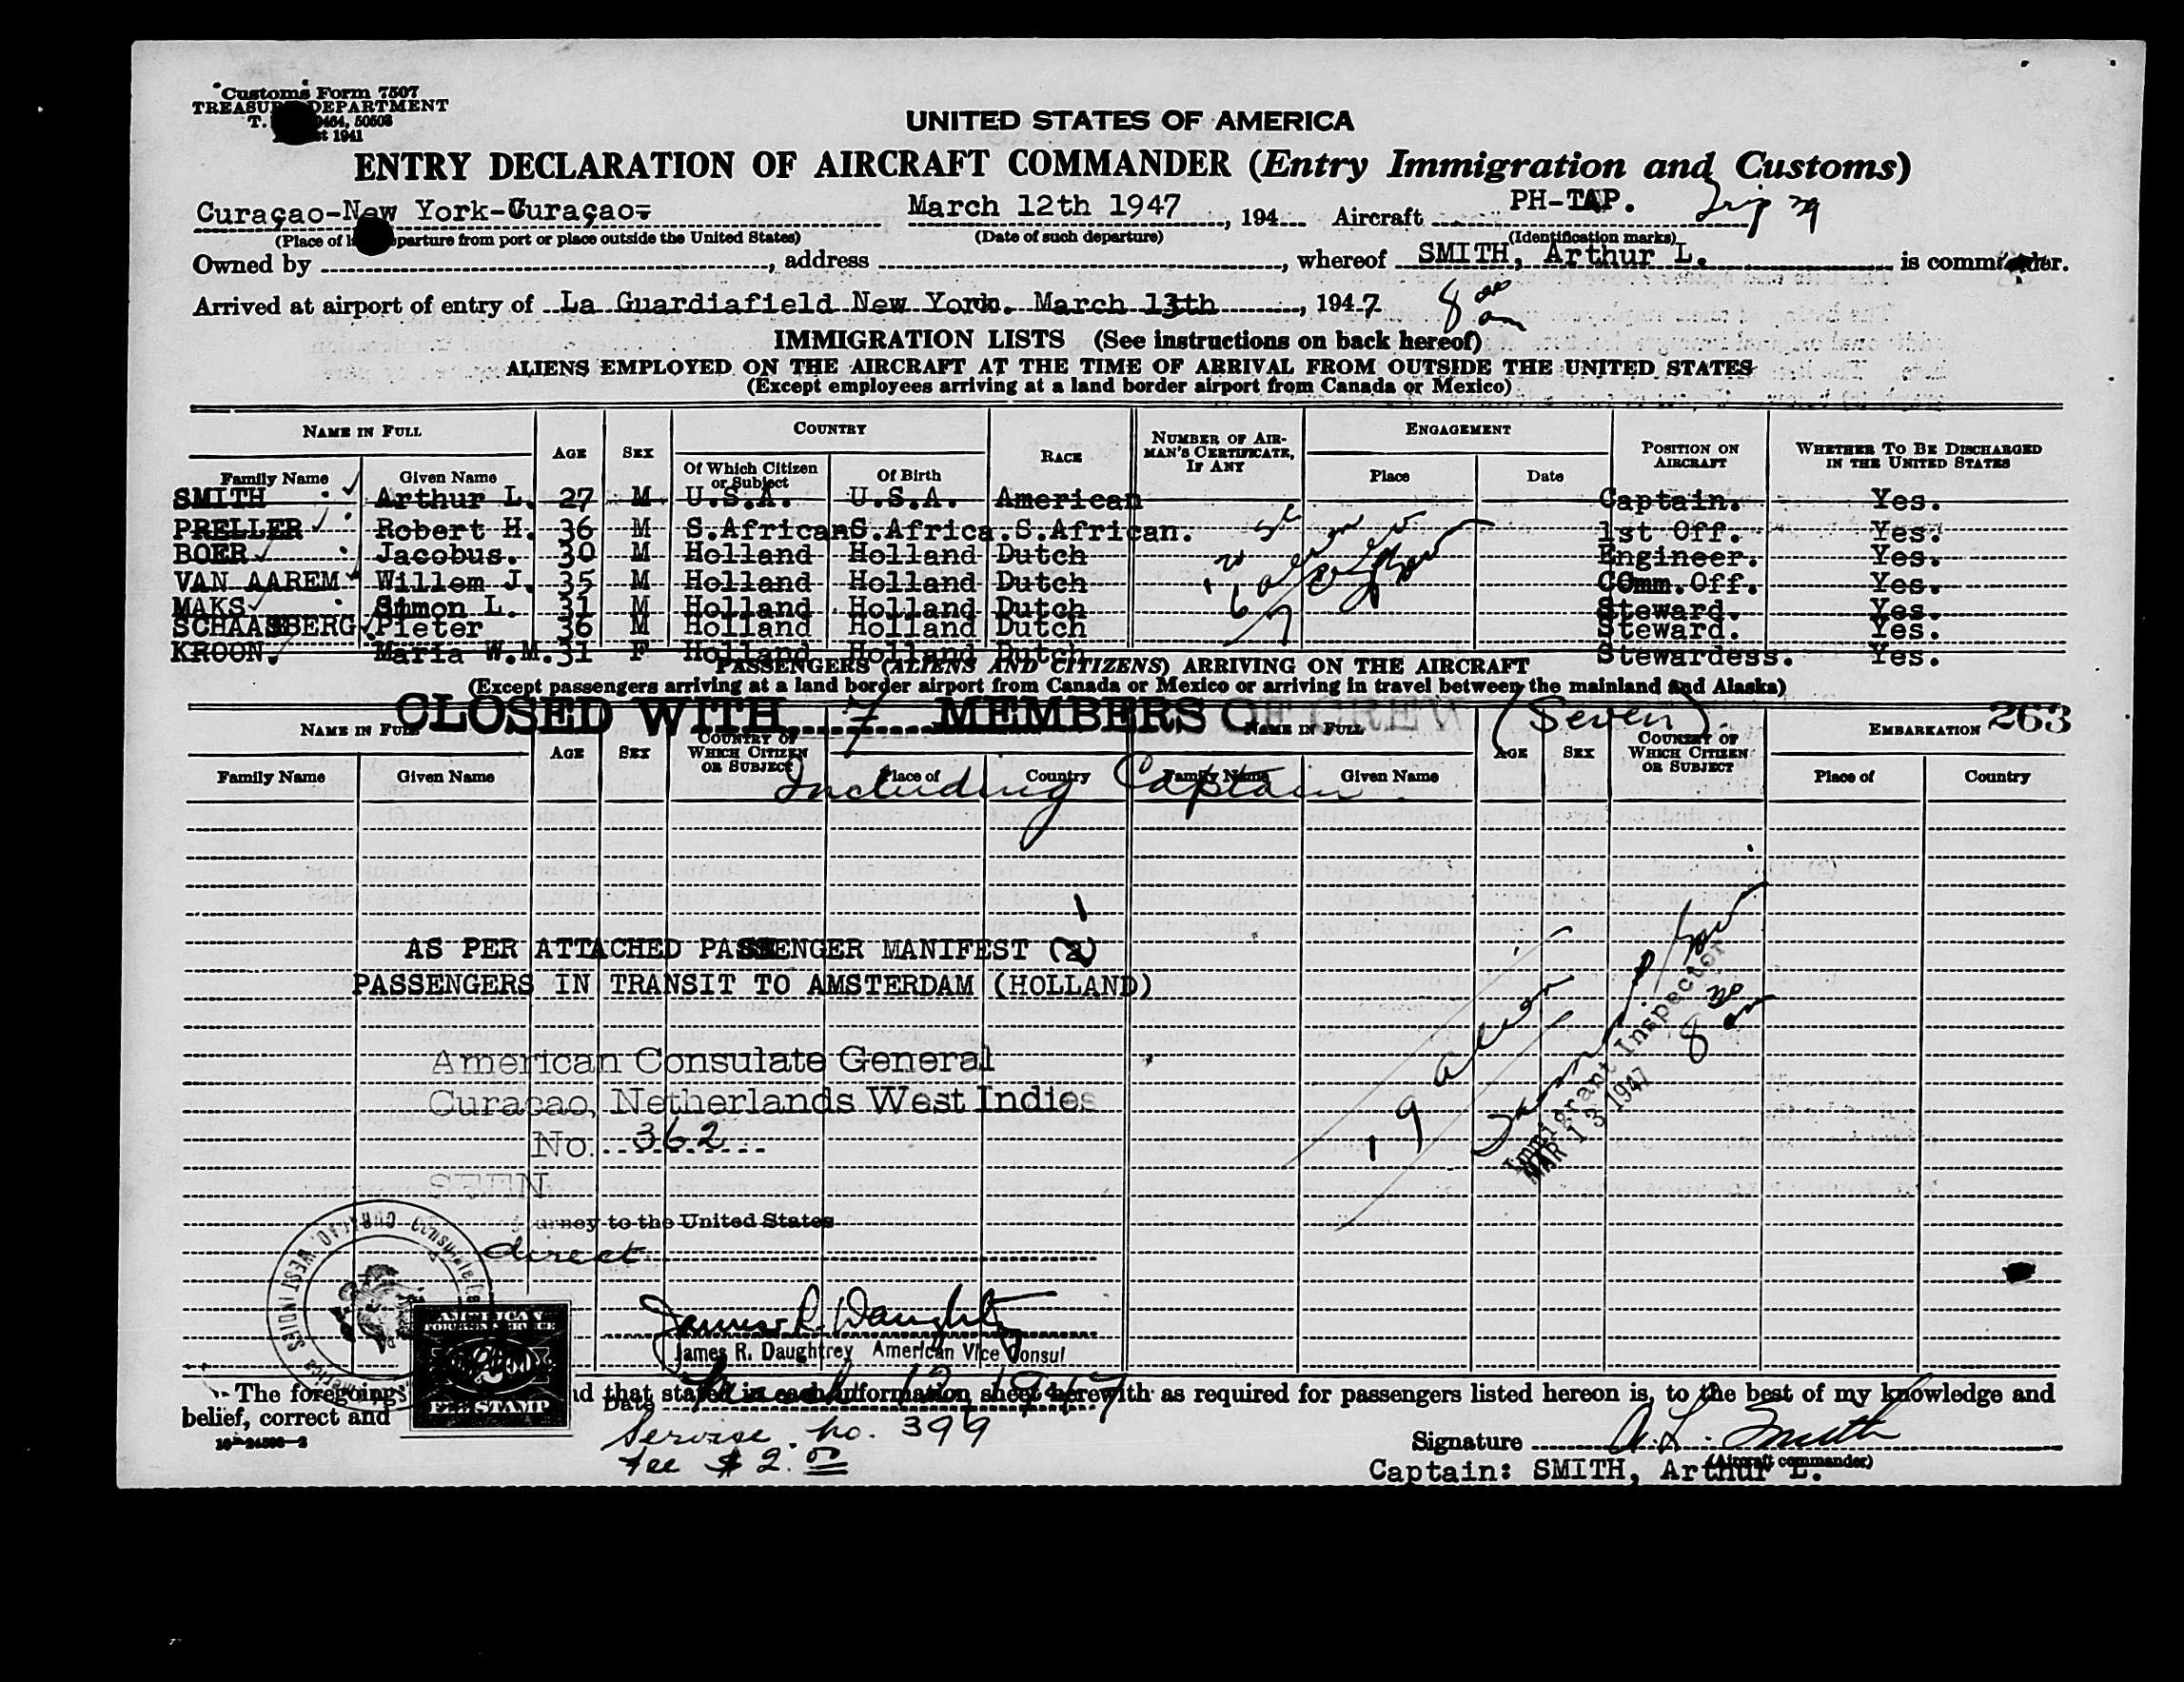 Customs Form 7507
TREASURY DEPARTMENT
T. 50503
1941
UNITED STATES OF AMERICA
ENTRY DECLARATION OF AIRCRAFT COMMANDER (Entry Immigration and Customs)
Curaçao-New York-Curaçao- March 12th 1947, 194 Aircraft PH-TAP. Trip 29
(Place of last departure from port or place outside the United States) (Date of such departure) (Identification marks)
Owned by , address , whereof SMITH, Arthur L. is commander.
Arrived at airport of entry of La Guardiafield New York. March 13th, 1947 8 00 am
IMMIGRATION LISTS (See instructions on back hereof)
ALIENS EMPLOYED ON THE AIRCRAFT AT THE TIME OF ARRIVAL FROM OUTSIDE THE UNITED STATES
(Except employees arriving at a land border airport from Canada or Mexico)
NAME IN FULL AGE SEX COUNTRY RACE NUMBER OF AIRMAN'S CERTIFICATE, IF ANY ENGAGEMENT POSITION ON AIRCRAFT WHETHER TO BE DISCHARGED IN THE UNITED STATES
Family Name Given Name Of Which Citizen or Subject Of Birth Place Date
SMITH Arthur L. 27 M U.S.A. U.S.A. American Captain. Yes.
PRELLER Robert H. 36 M S.African S.Africa. S.African. 1st Off. Yes.
BOER Jacobus. 30 M Holland Holland Dutch Engineer. Yes.
VAN AAREM Willem J. 35 M Holland Holland Dutch COmm.Off. Yes.
MAKS Simon L. 31 M Holland Holland Dutch Steward. Yes.
SCHAASBERG Pieter 36 M Holland Holland Dutch Steward. Yes.
KROON. Maria W.M. 31 F Holland Holland Dutch Stewardess. Yes.
PASSENGERS (ALIENS AND CITIZENS) ARRIVING ON THE AIRCRAFT
(Except passengers arriving at a land border airport from Canada or Mexico or arriving in travel between the mainland and Alaska)
CLOSED WITH 7 MEMBERS OF CREW (Seven) 263
Including Captain
NAME IN FULL AGE SEX COUNTRY OF WHICH CITIZEN OR SUBJECT NAME IN FULL AGE SEX COUNTRY OF WHICH CITIZEN OR SUBJECT EMBARKATION
Family Name Given Name Place of Country Family Name Given Name Place of Country
1
AS PER ATTACHED PASSENGER MANIFEST (2)
PASSENGERS IN TRANSIT TO AMSTERDAM (HOLLAND)
American Consulate General
Curacao, Netherlands West Indies
No. 362
SEEN
journey to the United States
direct
James R. Daughtrey
James R. Daughtrey American Vice Consul
Date March 12, 1947
Service no. 399
fee $ 2.00
19 alien
Immigrant Inspector
MAR 13 1947
8 30 am
AMERICAN
FOREIGN SERVICE
FEE STAMP
The foregoing and that stated in each information sheet herewith as required for passengers listed hereon is, to the best of my knowledge and
belief, correct and
Signature A. L. Smith
(Aircraft commander)
Captain: SMITH, Arthur L.